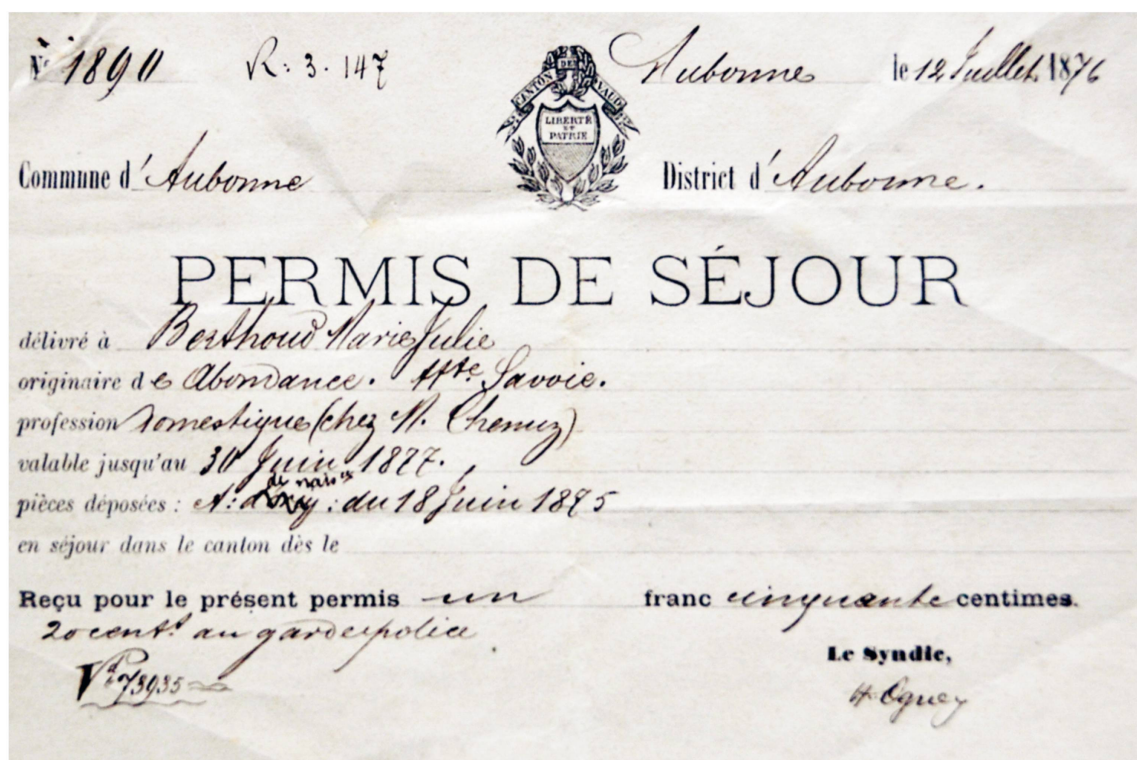 Nº 1890 R: 3. 147 Aubonne le 12 Juillet 1876
CANTON DE VAUD
LIBERTÉ
ET
PATRIE
Commune d' Aubonne District d' Aubonne.
PERMIS DE SÉJOUR
délivré à Berthoud Marie Julie
originaire de Abondance. Hte. Savoie.
profession Domestique (chez M. Chenuz)
valable jusqu'au 30 Juin 1877.
de naisce
pièces déposées : A: : du 18 Juin 1875
en séjour dans le canton dès le
Reçu pour le présent permis un franc cinquante centimes.
20 cents. au garde police
Le Syndic,
73935